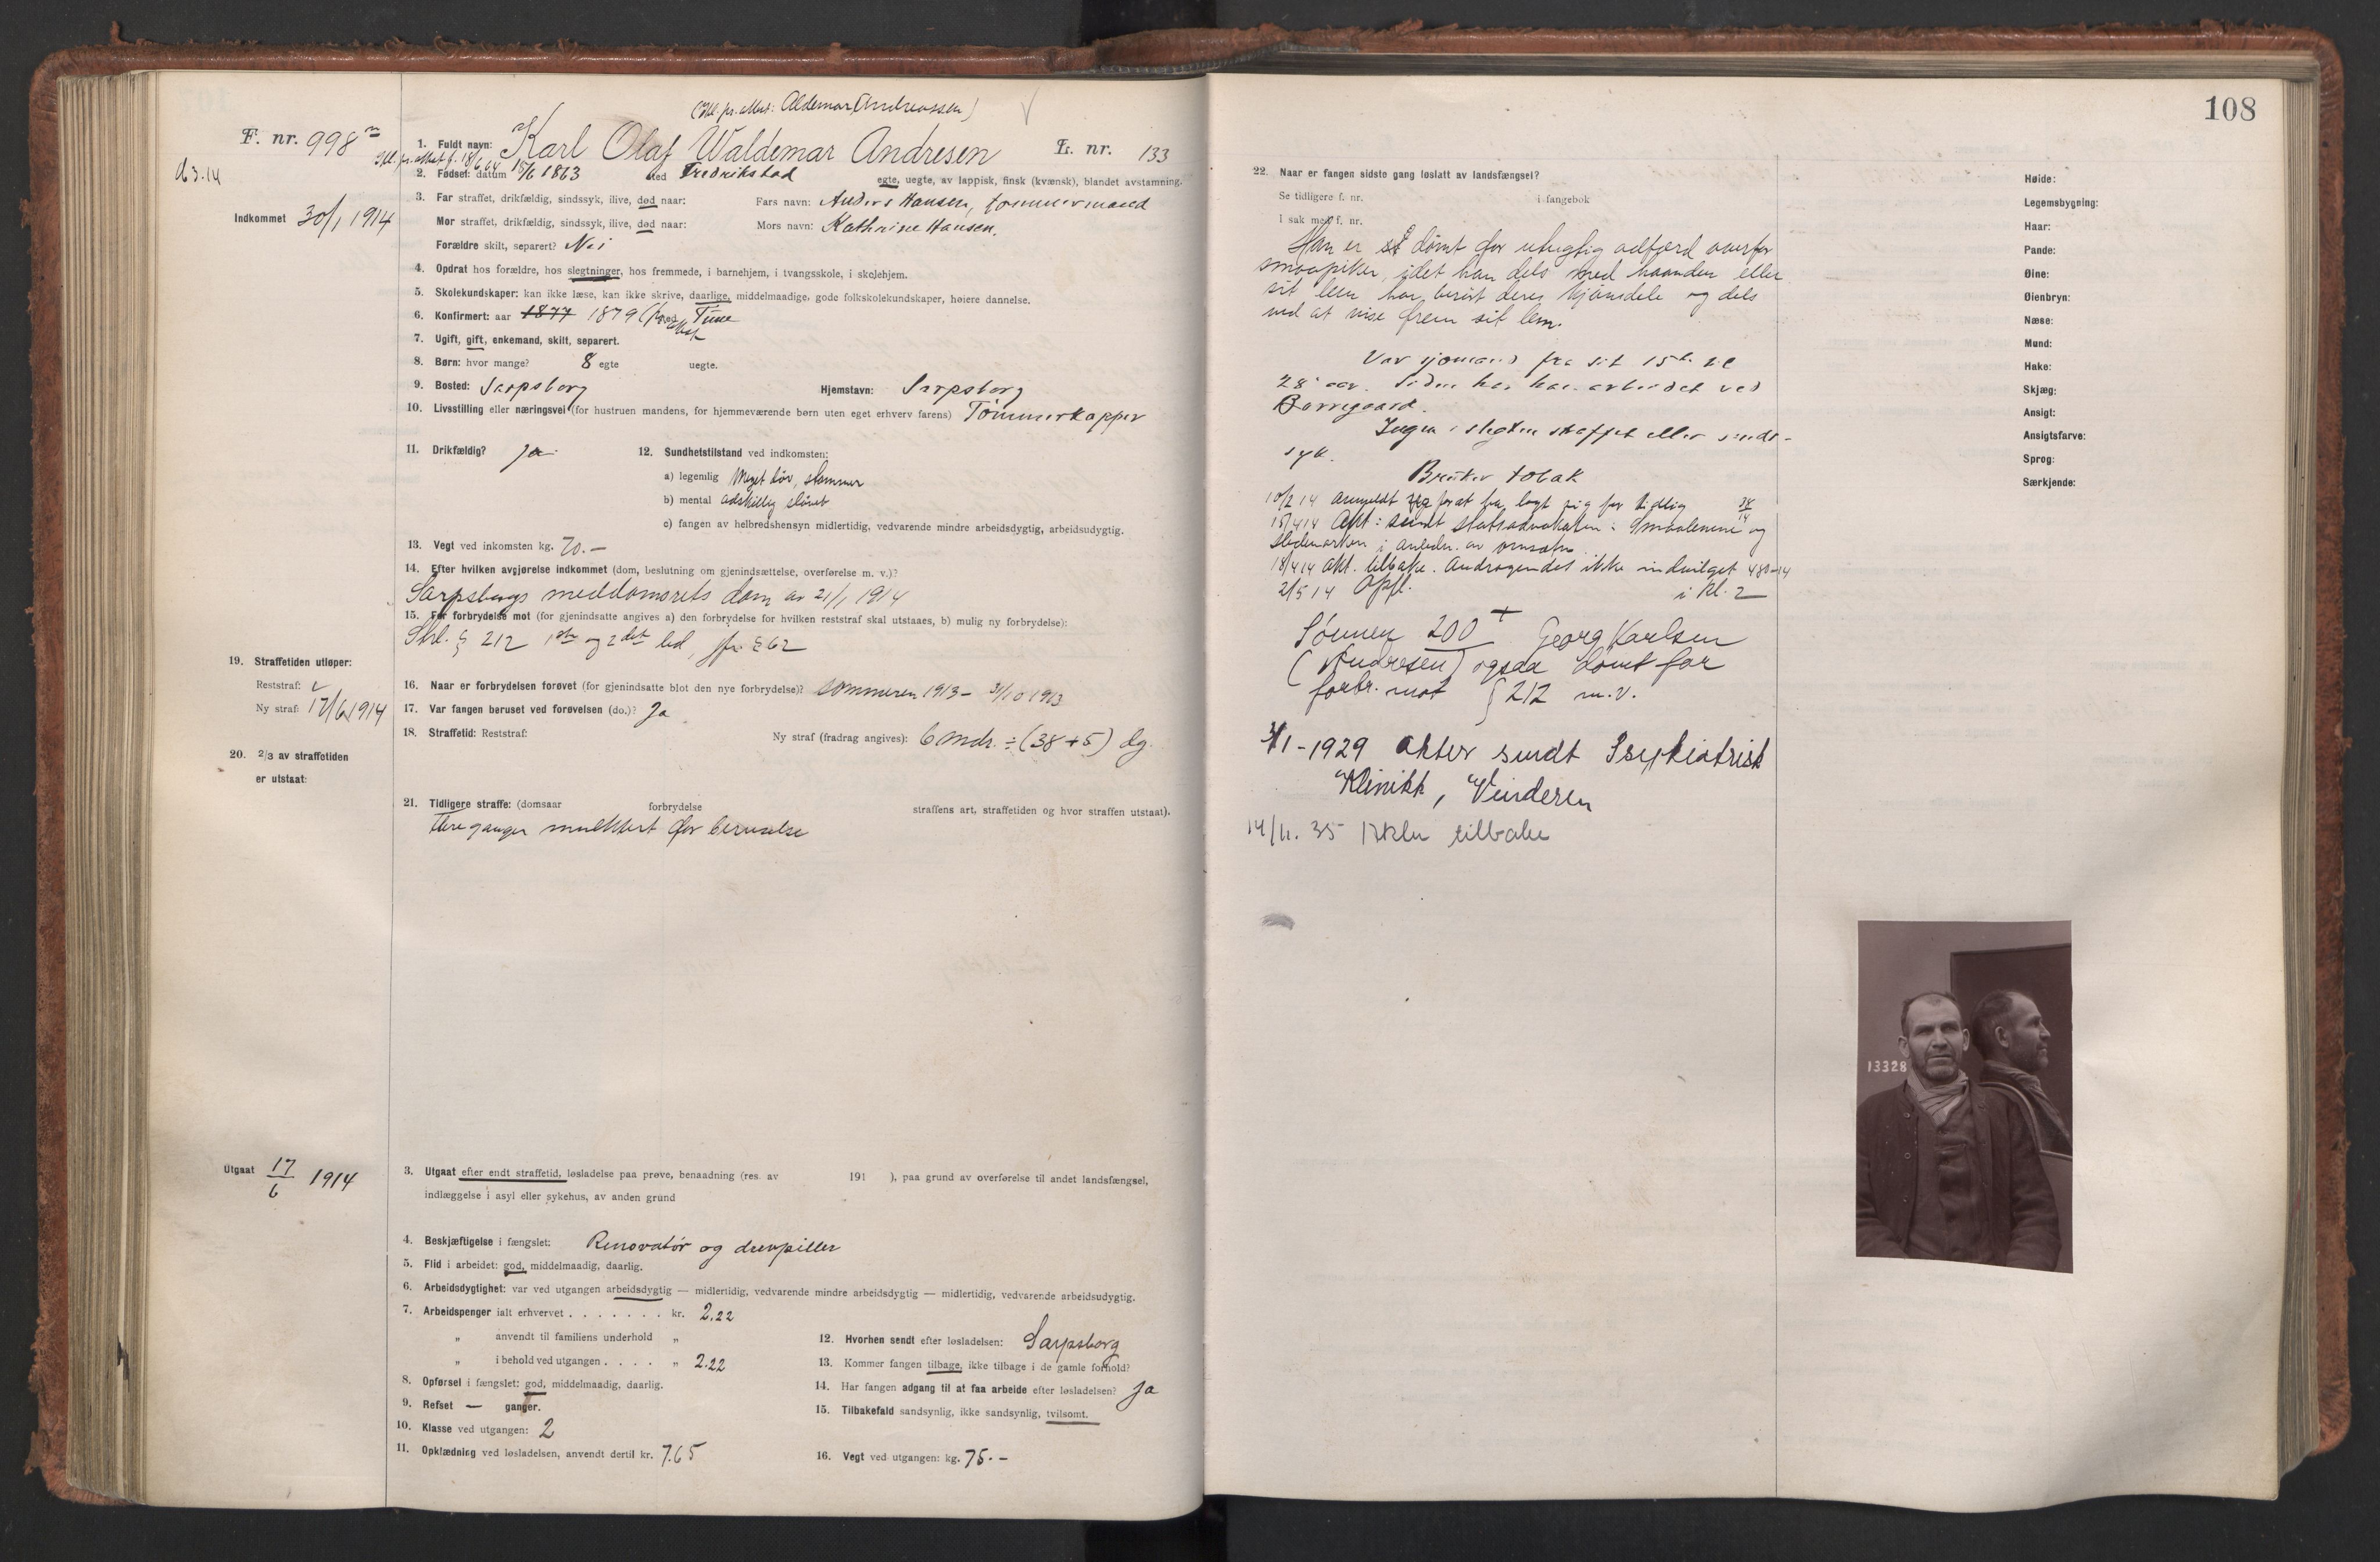 108
(Ifl. pr. attest: Aldemar Andreassen)
F. nr. 998
1. Fuldt navn: Karl Olaf Waldemar Andresen L. nr. 133
d 3.14
Ifl. pr. attest f. 18/6 64
2. Fødsel: datum 15/6 1863 sted Fredrikstad egte, uegte, av lappisk, finsk (kvænsk), blandet avstamning.
Indkommet 30/1 1914
3. Far straffet, drikfældig, sindssyk, ilive, død naar: Fars navn: Anders Hansen, tømmermand
Mor straffet, drikfældig, sindssyk, ilive, død naar: Mors navn: Kathrine Hansen.
Forældre skilt, separert? Nei
4. Opdrat hos forældre, hos slegtninger, hos fremmede, i barnehjem, i tvangsskole, i skolehjem.
5. Skolekundskaper: kan ikke læse, kan ikke skrive, daarlige, middelmaadige, gode folkskolekundskaper, høiere dannelse.
6. Konfirmert: aar 1877 1879 Tune
7. Ugift, gift, enkemand, skilt, separert.
8. Børn: hvor mange? 8 egte uegte.
9. Bosted: Sarpsborg Hjemstavn: Sarpsborg
10. Livsstilling eller næringsvei (for hustruen mandens, for hjemmeværende børn uten eget erhverv farens) Tømmerkapper
11. Drikfældig? Ja 12. Sundhetstilstand ved indkomsten:
a) legemlig Meget døv, stammer
b) mental adskillig sløvet
c) fangen av helbredshensyn midlertidig, vedvarende mindre arbeidsdygtig, arbeidsudygtig.
13. Vegt ved inkomsten kg. 70.-
14. Efter hvilken avgjørelse indkommet (dom, beslutning om gjenindsættelse, overførelse m. v.)?
Sarpsborgs meddomsrets dom av 21/1 1914
15. For forbrydelse mot (for gjenindsatte angives a) den forbrydelse for hvilken reststraf skal utstaaes, b) mulig ny forbrydelse):
Strl. § 212 1ste og 2det led, jfr. § 62
19. Straffetiden utløper:
Reststraf:
Ny straf: 17/6 1914
16. Naar er forbrydelsen forøvet (for gjenindsatte blot den nye forbrydelse)? sommeren 1913 - 31/10 1913
17. Var fangen beruset ved forøvelsen (do.)? Ja
18. Straffetid: Reststraf: Ny straf (fradrag angives): 6 mdr. ÷ (38 + 5) dg.
20. 2/3 av straffetiden
er utstaat:
21. Tidligere straffe: (domsaar forbrydelse straffens art, straffetiden og hvor straffen utstaat).
flere ganger mulktert for beruselse
Utgaat 17/6 1914
3. Utgaat efter endt straffetid, løsladelse paa prøve, benaadning (res. av 191 ), paa grund av overførelse til andet landsfængsel,
indlæggelse i asyl eller sykehus, av anden grund
4. Beskjæftigelse i fængslet: Renovatør og drevpiller
5. Flid i arbeidet: god, middelmaadig, daarlig.
6. Arbeidsdygtighet: var ved utgangen arbeidsdygtig — midlertidig, vedvarende mindre arbeidsdygtig — midlertidig, vedvarende arbeidsudygtig.
7. Arbeidspenger ialt erhvervet . . . . . . . kr. 2.22
„ anvendt til familiens underhold „
„ i behold ved utgangen . . . . „ 2.22
8. Opførsel i fængslet: god, middelmaadig, daarlig.
9. Refset — ganger.
10. Klasse ved utgangen: 2
11. Opklædning ved løsladelsen, anvendt dertil kr. 7.65
12. Hvorhen sendt efter løsladelsen: Sarpsborg
13. Kommer fangen tilbage, ikke tilbage i de gamle forhold?
14. Har fangen adgang til at faa arbeide efter løsladelsen? Ja
15. Tilbakefald sandsynlig, ikke sandsynlig, tvilsomt.
16. Vegt ved utgangen: kg. 75.-
22. Naar er fangen sidste gang løslatt av landsfængsel?
Se tidligere f. nr. i fangebok
I sak med f. nr.
Han er dømt for utugtig adfærd overfor
smaapiker, idet han dels med haanden eller
sit lem har berørt deres kjønsdele og dels
ved at vise frem sit lem.
Var sjømand fra sit 15de til
28' aar. Siden har han arbeidet ved
Borregaard.
Ingen i slegten straffet eller sinds-
syk.
Bruker tobak
10/2 14 anmeldt for at ha lagt sig for tidlig
15/4 14 Akt: sendt statsadvokaten i Smaalenene og
Hedemarken i anledn. av
18/4 14 Akt. tilbake. Andragendet ikke indvilget 480-14
2/5 14 Opfl. i kl. 2
Sønnen 200 Georg Karlsen
(Andresen) ogsaa dømt for
forbr. mot § 212 m.v.
3/1-1929 akter sendt Psykiatrisk
Klinikk, Vinderen
14/11. 35 tilbake
Høide:
Legemsbygning:
Haar:
Pande:
Øine:
Øienbryn:
Næse:
Mund:
Hake:
Skjæg:
Ansigt:
Ansigtsfarve:
Sprog:
Særkjende:
13328